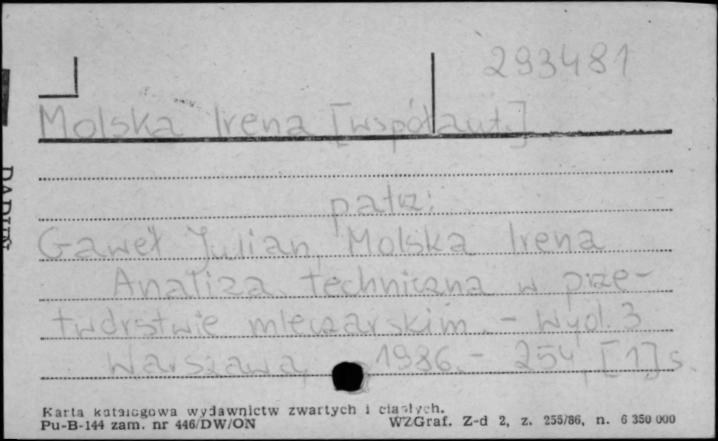 293481
Molska Irena [współaut.]
patrz:
Gaweł Julian, Molska Irena
Analiza techniczna w prze-
twórstwie mleczarskim. - Wyd. 3
Warszawa, 1986. - 254, [1] s.
Karta katalogowa wydawnictw zwartych i ciągłych.
Pu-B-144 zam. nr 446/DW/ON WZGraf. Z-d 2, z. 255/86, n. 6 350 000